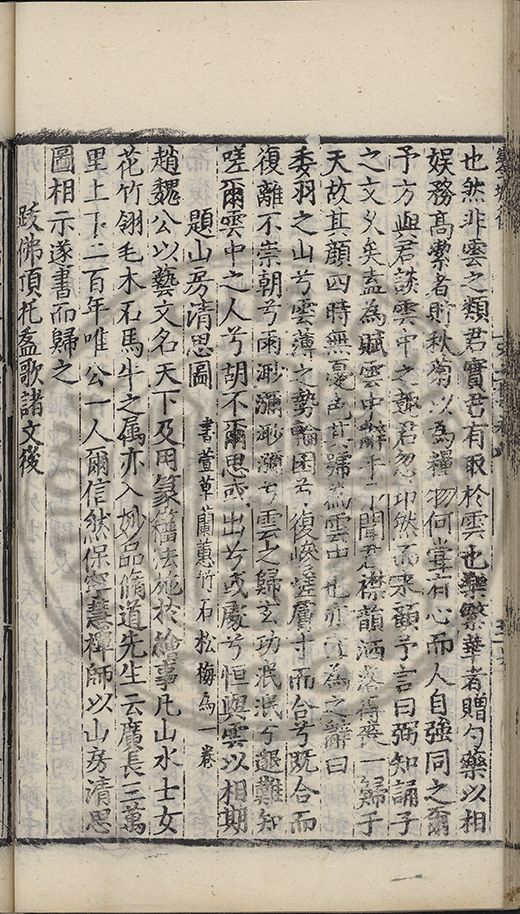 也然非雲之類君實君有取於雲也樂繁華者贈勺藥以相
娱務髙索者餐秋菊以為糧物何甞有心而人自強同之爾
予方與君談雲中之趣君忽卬然而来顧予言曰弼知誦子
之文乆矣盍為賦雲中辭乎予聞君襟韻洒落得喪一歸于
天故其顔四時無憂其號為雲中也亦宜為之辭曰
委羽之山兮雲薄之勢輪囷兮復峻嵯膚寸而合兮既合而
復離不崇朝兮雨渺瀰渺瀰兮雲之歸玄功泯泯兮邈難知
嗟爾雲中之人兮胡不爾思或出兮或處兮恒與雲以相期
題山房清思圖 書萱草蘭蕙竹石松梅為一卷
趙魏公以藝文名天下及用篆籀法施於繪事凡山水士女
花竹翎毛木石馬牛之属亦入妙品脩道先生云廣長三萬
里上下二百年唯公一人爾信然保寧慧禪師以山房清思
圖相示遂書而歸之
跋佛頂托盋歌諸文後